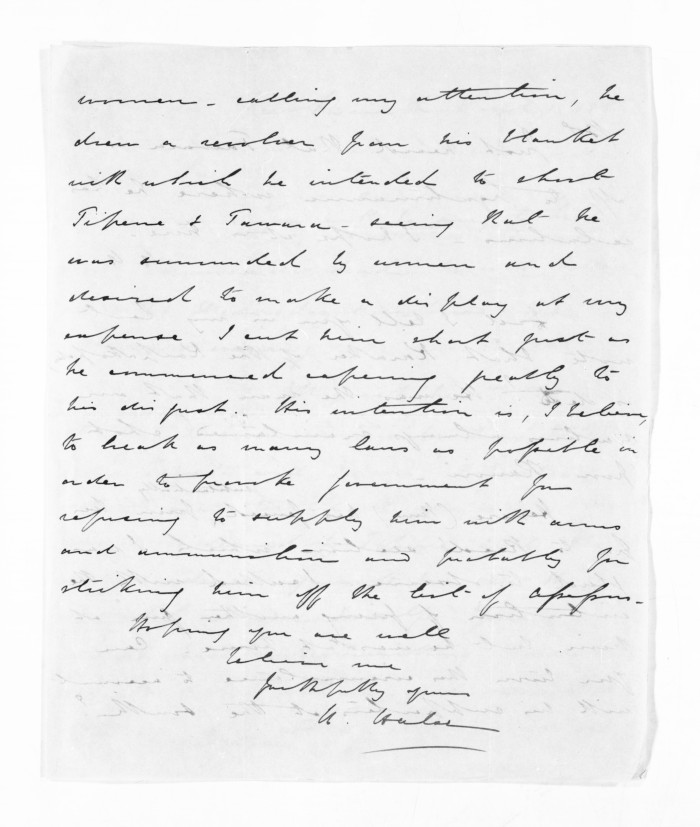 women - calling my attention, he
drew a revolver from his blanket
with which he intended to shoot
Tipene & Tawara - seeing that he
was surrounded by women and
desired to make a display at my
expense I cut him short just as
he commenced capering greatly to
his disgust. His intention is, I believe,
to break as many laws as possible in
order to provoke Government for
refusing to supply him with arms
and ammunition and probably for
striking him off the list of Assessors -
Hoping you are well
Believe me
faithfully yours
H. Halse